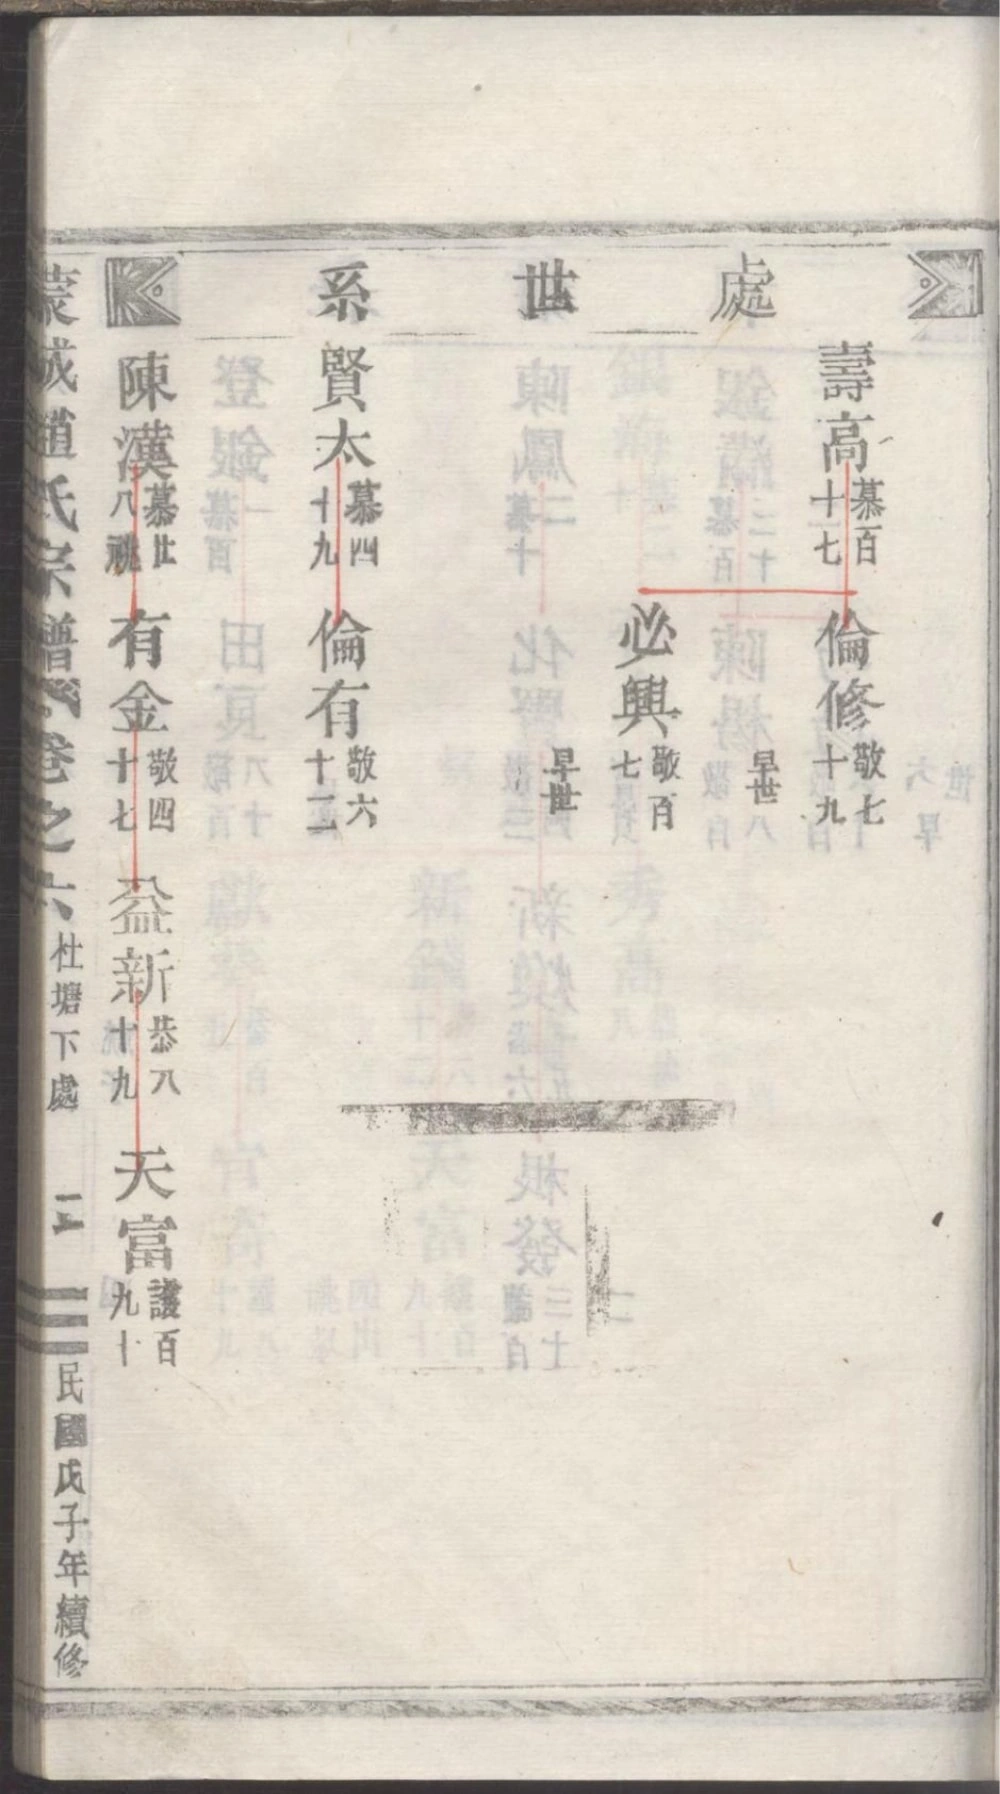 處世系
壽高 慕百十七
倫修 敬七十九
早世
必興 敬百七
早世
賢太 慕四十九
倫有 敬六十二
陳漢 慕廿八 祧
有金 敬四十七
益新 恭八十九
天富 護百九十
蒙城趙氏宗譜 卷之六 杜塘下處 民國戊子年續修